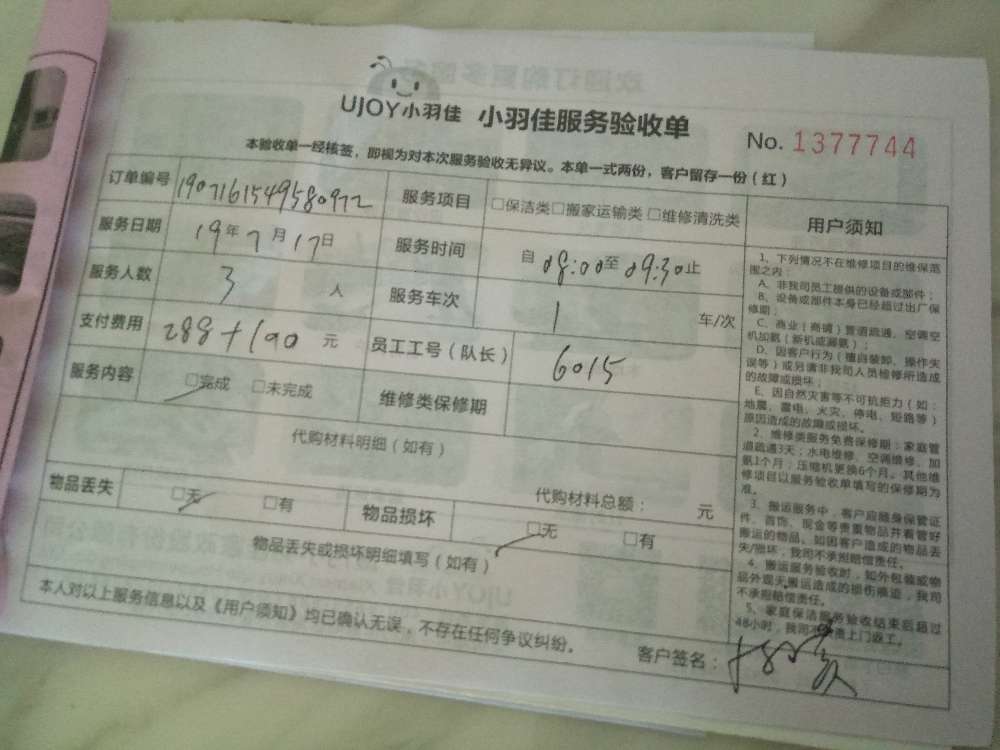 UJOY小羽佳 小羽佳服务验收单
No. 1377744
本验收单一经核签，即视为对本次服务验收无异议。本单一式两份，客户留存一份（红）
订单编号 1907161549580972 服务项目 □保洁类□搬家运输类 □维修清洗类
服务日期 19年7月17日 服务时间 自08:00至09:30止
服务人数 3 人 服务车次 1 车/次
支付费用 288+100 元 员工工号（队长） 6015
服务内容 □完成 □未完成 维修类保修期
代购材料明细（如有）
代购材料总额： 元
物品丢失 □无 □有 物品损坏 □无 □有
物品丢失或损坏明细填写（如有）
本人对以上服务信息以及《用户须知》均已确认无误，不存在任何争议纠纷。
客户签名：
用户须知
1、下列情况不在维修项目的维保范
围之内：
A、非我司员工提供的设备或部件；
B、设备或部件本身已经超过出厂保
修期；
C、商业（商铺）管道疏通、空调空
机加氨（新机或漏氨）；
D、因客户行为（擅自装卸、操作失
误等）或另请非我司人员检修所造成
的故障或损坏；
E、因自然灾害等不可抗拒力（如：
地震、雷电、火灾、停电、短路等）
原因造成的故障或损坏。
2、维修类服务免费保修期：家庭管
道疏通3天；水电维修、空调维修、加
氨1个月；压缩机更换6个月。其他维
修项目以服务验收单填写的保修期为
准。
3、搬运服务中，客户应随身保管证
件、首饰、现金等贵重物品并看管好
搬运的物品。如因客户造成的物品丢
失/损坏，我司不承担赔偿责任。
4、搬运服务验收时，如外包装或物
品外观无搬运造成的损伤痕迹，我司
不承担赔偿责任。
5、家庭保洁服务验收结束后超过
48小时，我司不负责上门返工。